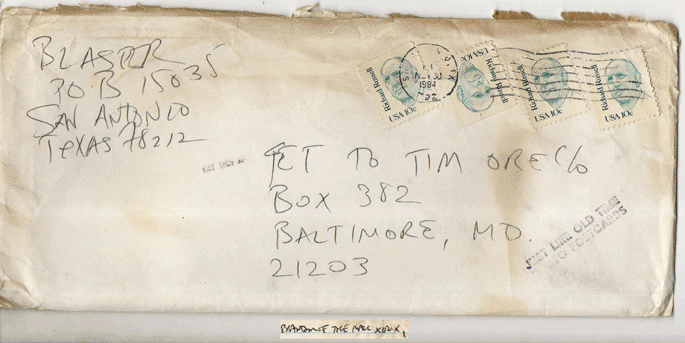 BLASTER
PO B 15035
SAN ANTONIO
TEXAS 78212
1984
Richard Russell
USA 10c
Richard Russell
USA 10c
Richard Russell
USA 10c
Richard Russell
USA 10c
ET TO TIM ORE C/O
BOX 382
BALTIMORE, MD.
21203
JUST LIKE OLD TIME
POSTCARDS